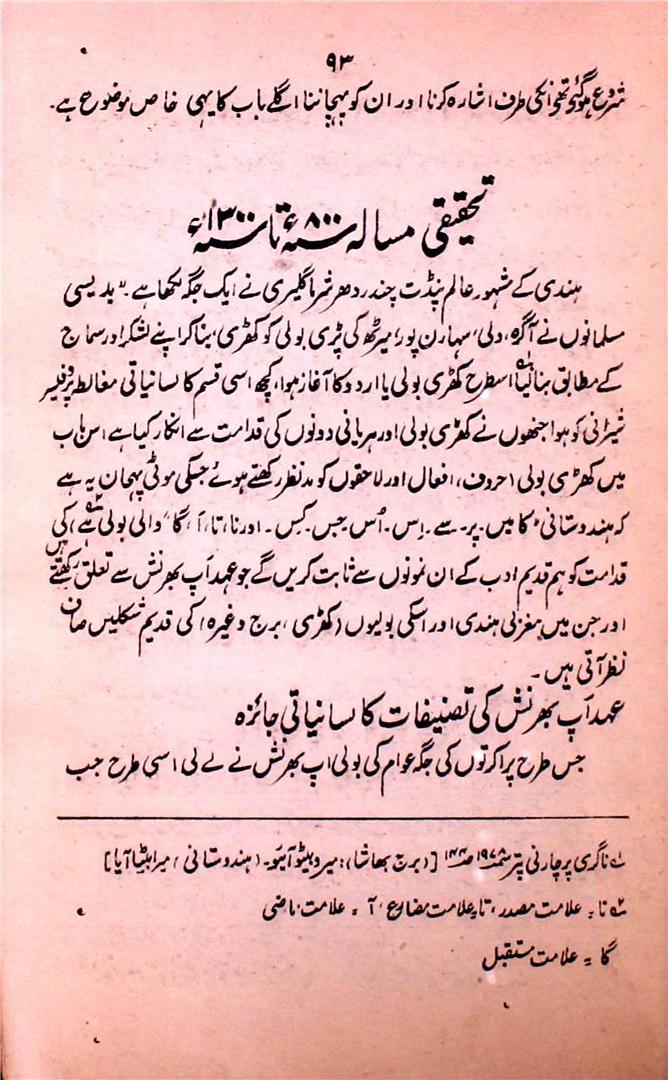 ۹۳
شروع ہو گئی تھی انکی طرف اشارہ کرنا اور ان کو پہچاننا اگلے باب کا یہی خاص موضوع ہے۔
تحقیقی مسالہ ۸۰۰؁ء تا ۱۳۰۰؁ء
ہندی کے مشہور عالم پنڈت چندر دھر شرما گلیری نے ایک جگہ لکھا ہے۔ "بدیسی
مسلمانوں نے آگرہ، دلی، سہارن پور، میرٹھ کی پڑی بولی کو کھڑی، بنا کر اپنے لشکر اور سماج
کے مطابق بنا لیا۱؎ اسطرح کھڑی بولی یا اردو کا آغاز ہوا، کچھ اسی قسم کا لسانیاتی مغالطہ پروفیسر
شیرانی کو ہوا جنھوں نے کھڑی بولی اور ہریانی دونوں کی قدامت سے انکار کیا ہے اس باب
میں کھڑی بولی (حروف، افعال اور لاحقوں کو مدنظر رکھتے ہوئے جسکی موٹی پہچان یہ ہے
کہ ہندوستانی "کا میں۔ پر۔ سے۔ اِس۔ اُس۔ جس۔ کِس۔ اور نا، تا، آ، گا" والی بولی ہے۲؎) کی
قدامت کو ہم قدیم ادب کے ان نمونوں سے ثابت کریں گے جو عہد اَپ بھرنش سے تعلق رکھتے ہیں
اور جن میں مغربی ہندی اور اسکی بولیوں (کھڑی، برج وغیرہ) کی قدیم شکلیں صاف
نظر آتی ہیں۔
عہد اَپ بھرنش کی تصنیفات کا لسانیاتی جائزہ
جس طرح پراکرتوں کی جگہ عوام کی بولی اپ بھرنش نے لے لی اسی طرح جب
۱؎ ناگری پرچارنی پتر سمت ۱۹۷۸ ص ۱۴۴ [(برج بھاشا): میرو بیٹو آیو۔ (ہندوستانی) میرا بیٹا آیا]
۲؎ نا = علامت مصدر، تا = علامت مضارع، آ = علامت ماضی
گا = علامت مستقبل